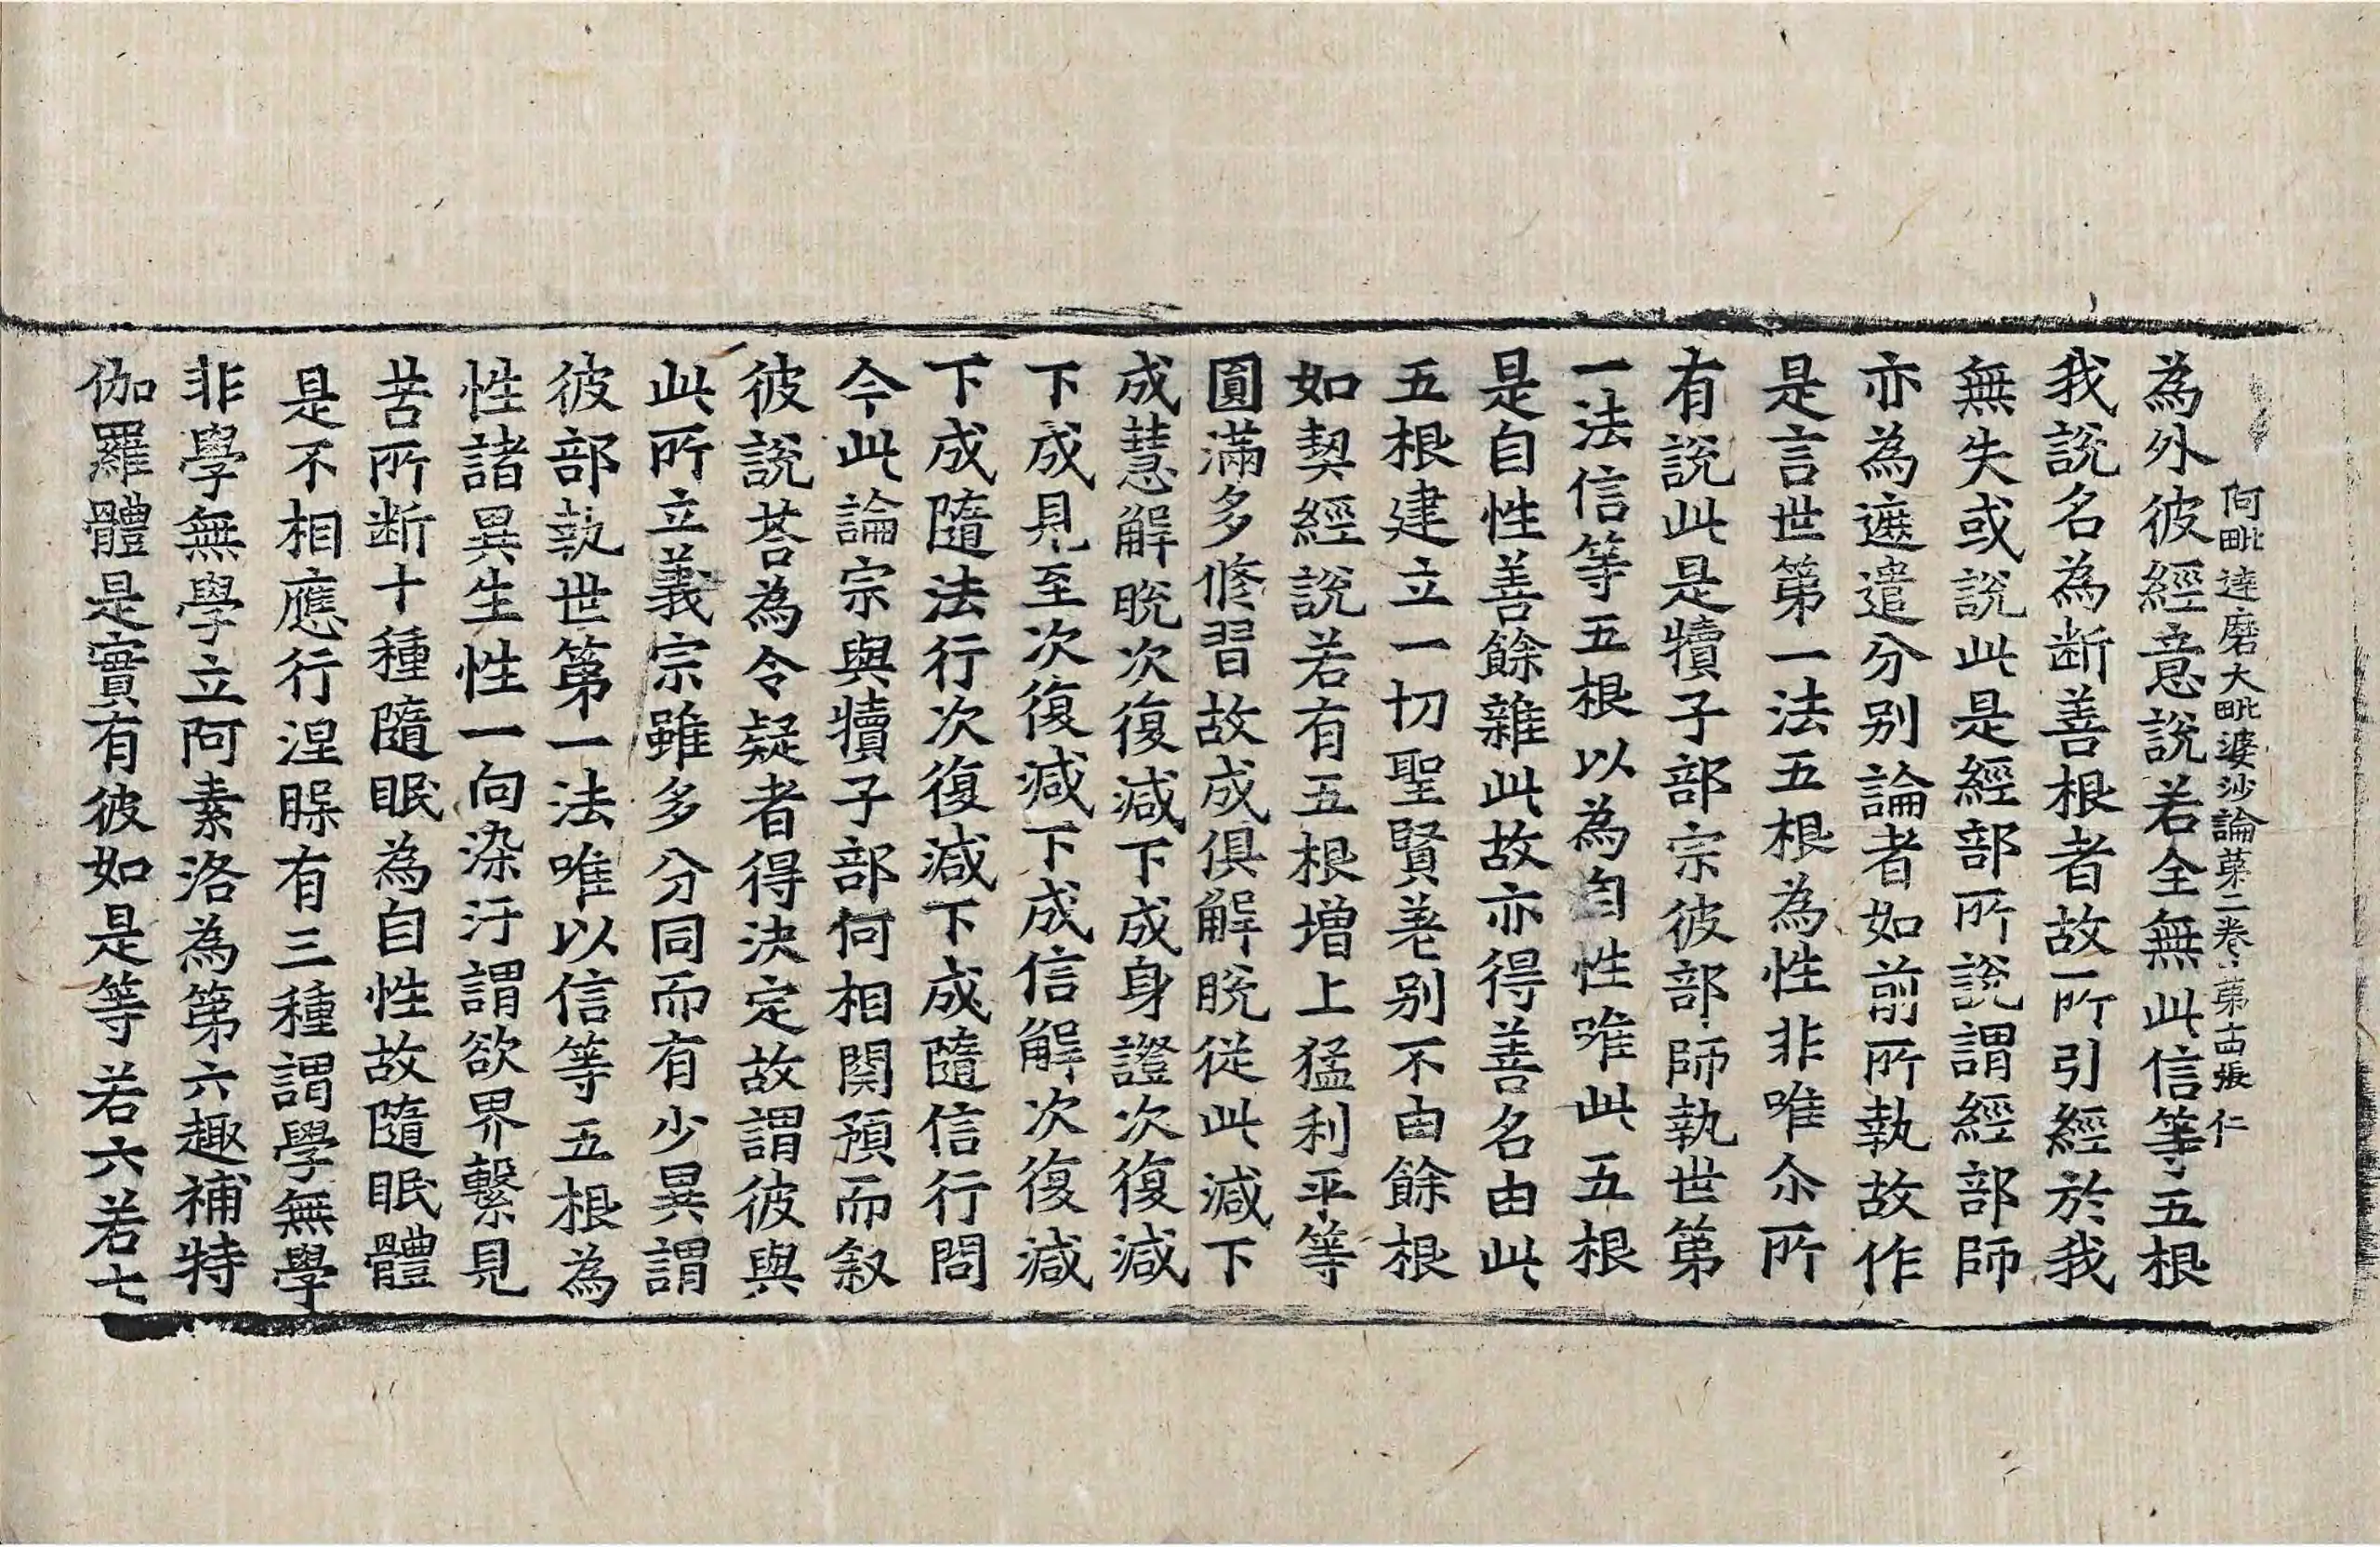 阿毗達磨大毗婆沙論第二卷 第十四張 仁
為外彼經意說若全無此信等五根
我說名為断善根者故所引經於我
無失或說此是經部所說謂經部師
亦為遮遣分別論者如前所執故作
是言世第一法五根為性非唯尒所
有說此是犢子部宗彼部師執世第
一法信等五根以為自性唯此五根
是自性善餘雜此故亦得善名由此
五根建立一切聖賢差別不由餘根
如契經說若有五根增上猛利平等
圓滿多修習故成俱解脫從此減下
成慧解脫次復減下成身證次復減
下成見至次復減下成信解次復減
下成隨法行次復減下成隨信行問
今此論宗與犢子部何相関預而叙
彼說荅為令疑者得決定故謂彼與
此所立義宗雖多分同而有少異謂
彼部執世第一法唯以信等五根為
性諸異生性一向染汙謂欲界繫見
苦所断十種隨眠為自性故隨眠體
是不相應行涅槃有三種謂學無學
非學無學立阿素洛為第六趣補特
伽羅體是實有彼如是等若六若七